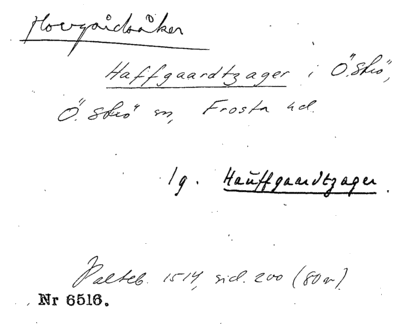 Hovgårdsåker
Haffgaardtzager i Ö. Strö,
Ö. Strö sn, Frosta hd.
1g. Hauffgaardtzager.
Palteb. 1514, sid. 200 (80v).
Nr 6516.